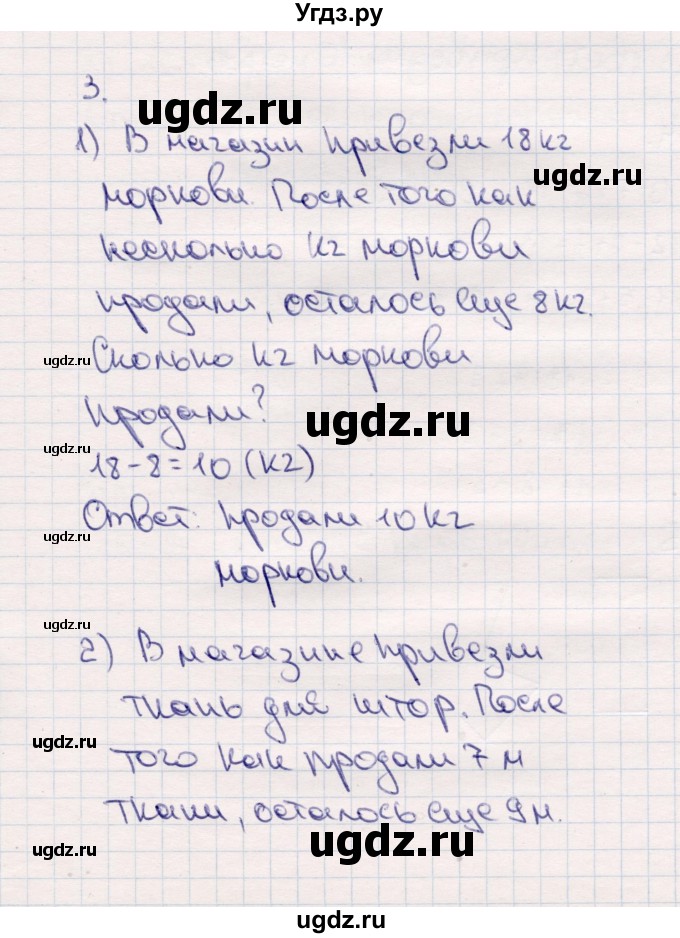 Угдз.ру
3.
ugdz.ru
1) В магазин привезли 18 кг
ugdz.ru
моркови. После того как
несколько кг моркови
продали, осталось еще 8 кг.
ugdz.ru
Сколько кг моркови
продали?
ugdz.ru
18-8=10 (кг)
ugdz.ru
Ответ: продали 10 кг
моркови.
ugdz.ru
2) В магазине привезли
ткань для штор. После
ugdz.ru
того как продали 7 м
ткани, осталось еще 9 м.
ugdz.ru
ugdz.ru
ugdz.ru